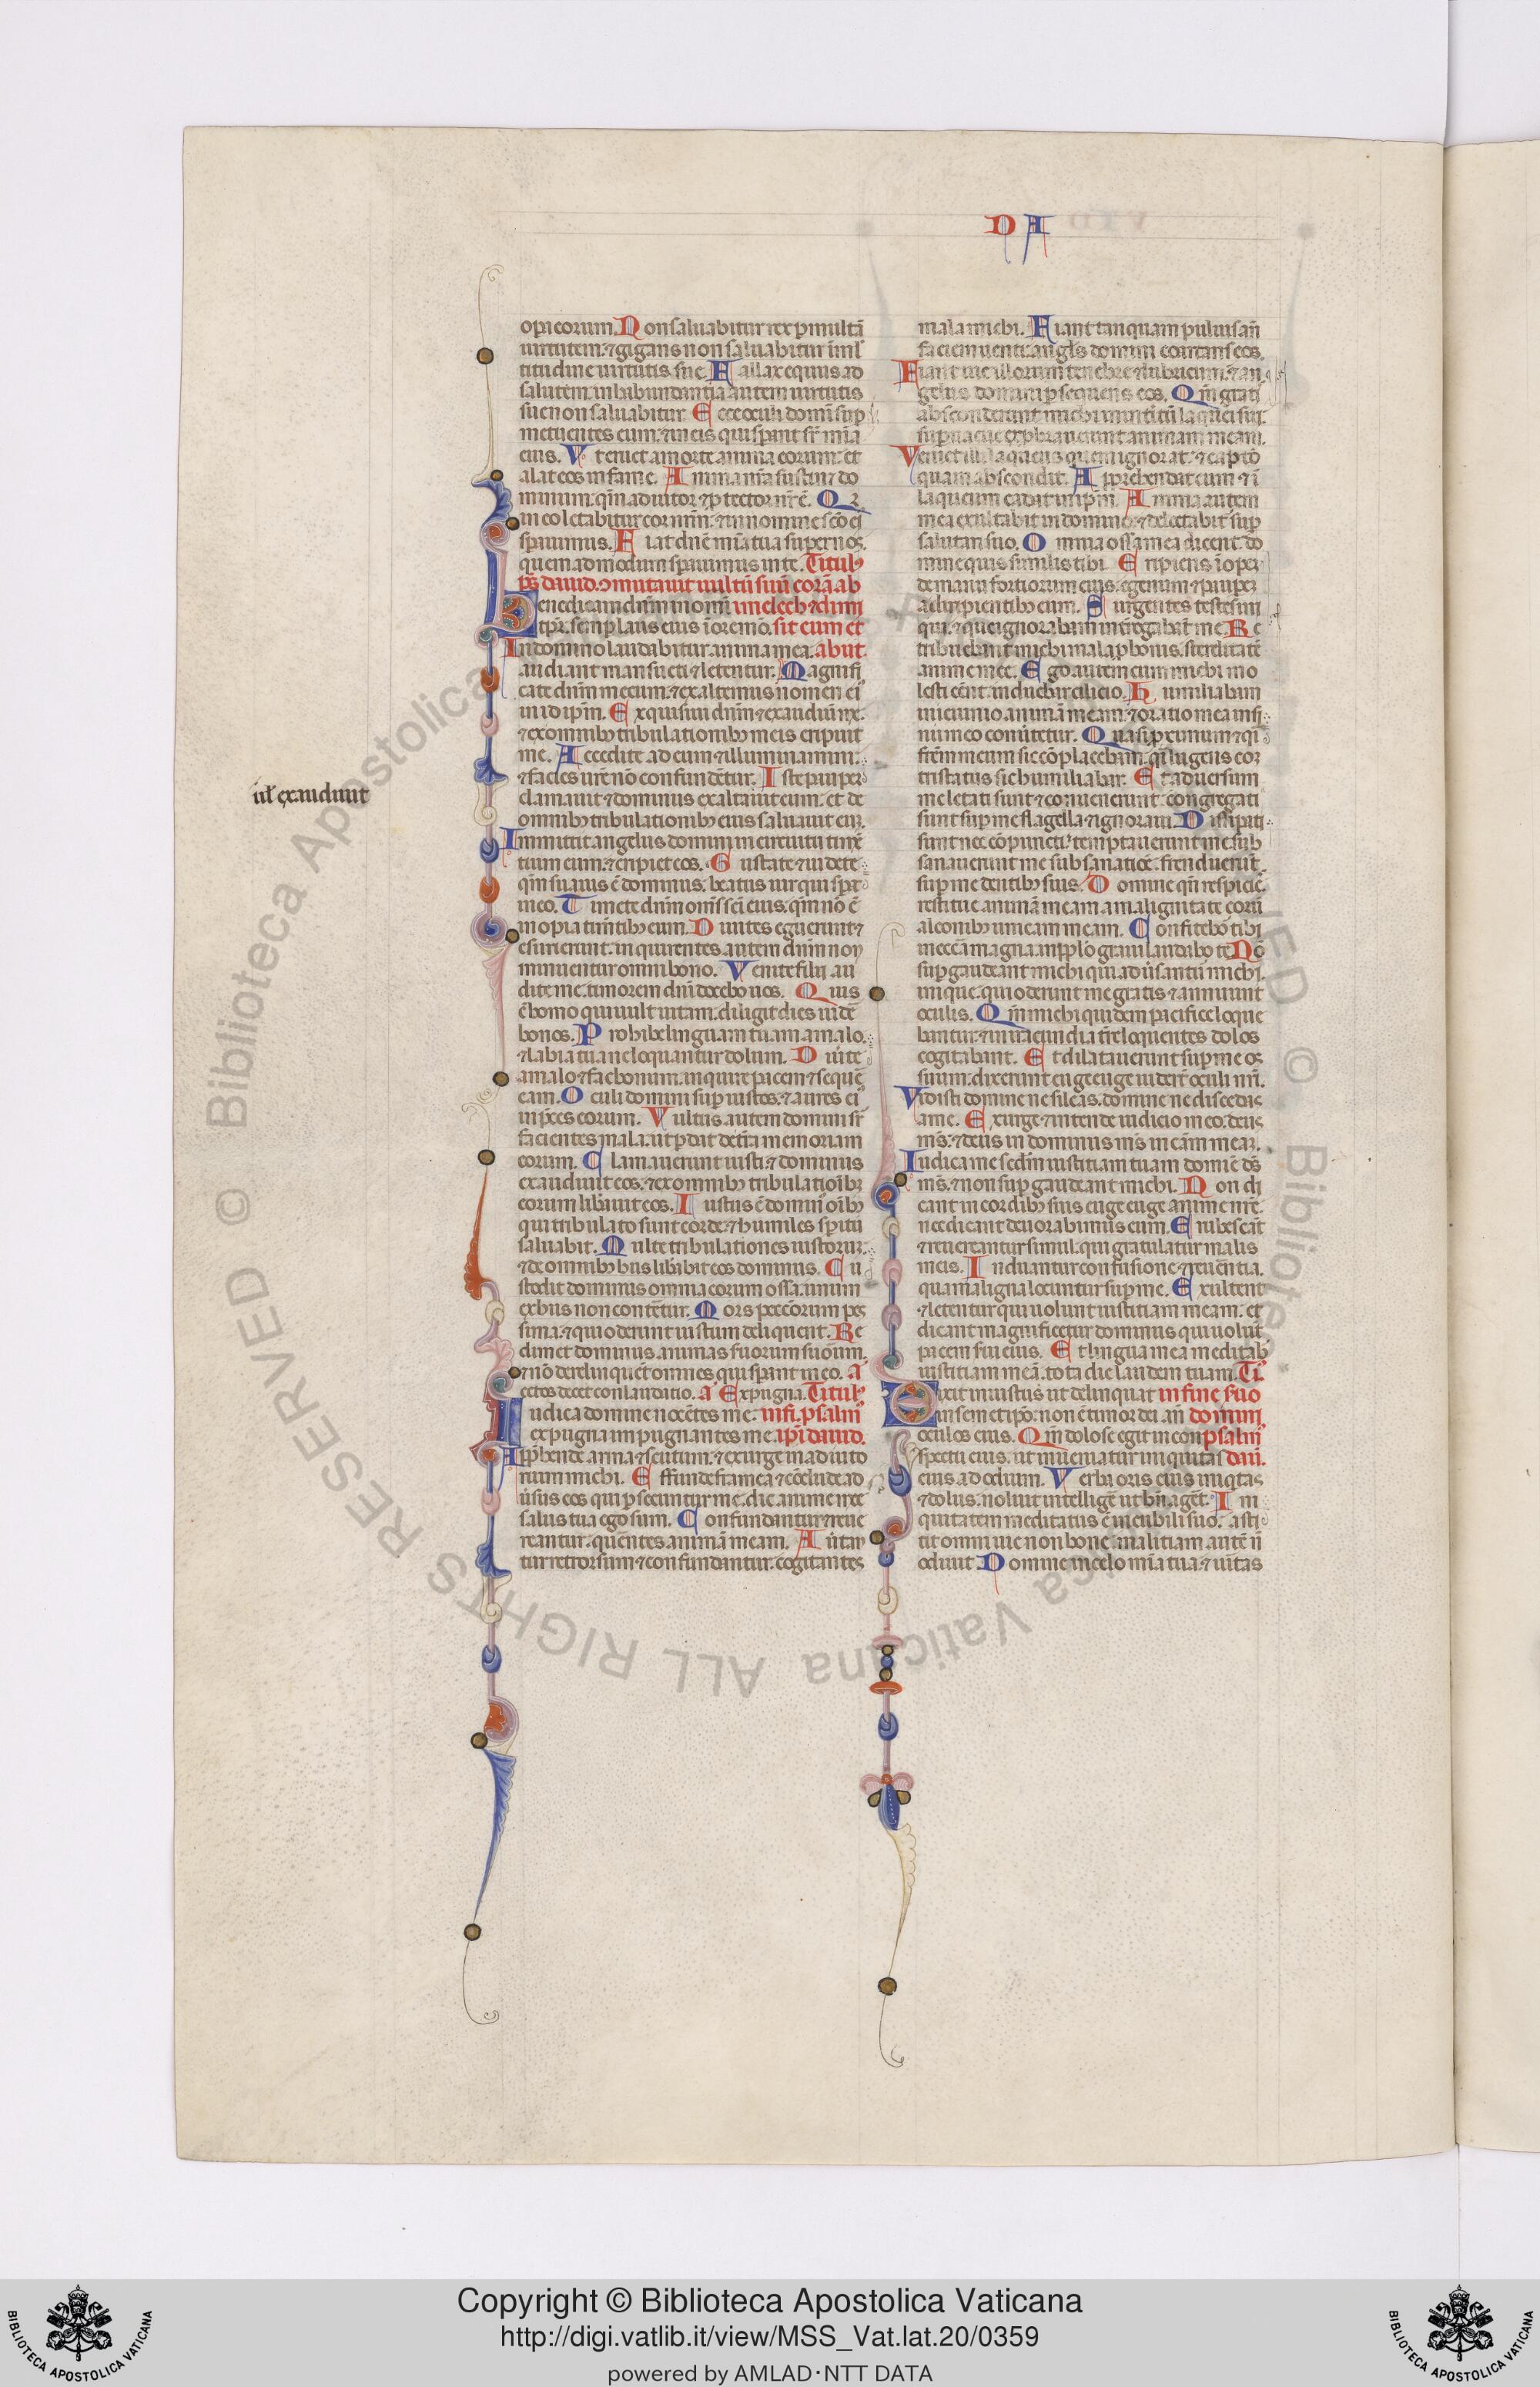 D A
opa eorum. Non saluabitur rex p multā
uirtutem: ⁊ gigans non saluabitur ī ml̄
titudine uirtutis sue. Fallax equus ad
salutem: in habundantia autem uirtutis
sue non saluabitur. Ecce oculi domī sup̄
metuentes eum: ⁊ in eis qui sperant sr̄ mīa
eius. Vt eruet a morte anima eorum: et
alat eos in fame. Anima nr̄a sustinet do
minum: qm̄ adiutor ⁊ ꝓtector nr̄ ē. Qꝛ
in eo letabitur cor nr̄m: ⁊ in nomine scō eī
sperauimus. Fiat dn̄e mīa tua super nos.
quem admodum sperauimus in te. Titulꝰ
ps̄ dauid. ꝯmutauit uultū suū corā ab
enedicam dn̄m in omī imelech ⁊ dimi
tp̄r. semp̄ laus eius ī ore meo. sit eum et
In domino laudabitur anima mea: abiit
audiant mansueti ⁊ letentur. Magnifi
cate dn̄m mecum: ⁊ exaltemus nomen eī
in id ip̄m. Exquisiui dn̄m ⁊ exaudiuit me.
⁊ ex omnibꝰ tribulationibꝰ meis eripuit
me. Accedite ad eum ⁊ illuminamini:
⁊ facies ur̄e nō confundētur. Iste pauper
clamauit ⁊ dominus exaltauit eum: et de
omnibꝰ tribulationibꝰ eius saluauit eū.
ul̄ exaudiuit
Immittit angelus domini in circuitu timē
tium eum: ⁊ eripiet eos. Gustate ⁊ uidete
qm̄ suauis ē dominus: beatus uir qui sperat
in eo. Timete dn̄m om̄s sc̄i eius: qm̄ nō ē
inopia tim̄tibꝰ eum. Diuites eguerunt ⁊
esurierunt: inquirentes autem dn̄m non
minuentur omni bono. Venite filii au
dite me: timorem dn̄i docebo uos. Quis
ē homo qui uult uitam: diligit dies uidē
bonos. Prohibe linguam tuam a malo.
⁊ labia tua ne loquantur dolum. Diūte
a malo ⁊ fac bonum: inquire pacem ⁊ sequē
eam. Oculi domini sup̄ iustos: ⁊ aures eī
in p̄ces eorum. Vultus autem domini sr̄
facientes mala: ut ꝑdat de tr̄a memoriam
eorum. Clamauerunt iusti: ⁊ dominus
exaudiuit eos: ⁊ ex omnibꝰ tribulatiōibꝫ
eorum lib̄auit eos. Iustus ē domī oībꝰ
qui tribulato sunt corde: ⁊ humiles sp̄itu
saluabit. Multe tribulationes iustorum:
⁊ de omnibꝰ hiis lib̄abit eos dominus. Cu
stodit dominus omnia eorum ossa: unum
ex hiis non contētur. Mors pccōrum pes
sima: ⁊ qui oderunt iustum deliquent. Re
dimet dominus animas suorum suōrum:
⁊ nō derelinquēt omnes qui sperant in eo. a
ectos decet conlaudatio. a Expugna. Titulꝰ
udica domine nocētes me: in fi. psalm̄
expugna impugnantes me. ip̄i dauid.
App̄hende arma ⁊ scutum: ⁊ exurge in adiuto
rium michi. Effunde framea ⁊ cōclude ad
ūsus eos qui ꝑsecuntur me: dic anime mee
salus tua ego sum. Confundantur ⁊ reue
reantur: querentes animā meam. Aūtan
tur retrorsum ⁊ confundantur: cogitantes
mala michi. Fiant tanquam puluis an̄
faciem uenti: angl̄s domini coartans eos.
Fiant uie illorum tenebre ⁊ lubricum: ⁊ an
gelus domini ꝑsequens eos. Qm̄ gratis
absconderunt michi interitū laquei sui:
sup̄uacue exprobrauerunt animam meam.
Veniet illi laqueus quem ignorat: ⁊ captō
quam abscondit: Apprehendat eum ⁊ ī
laqueum cadat in ip̄m. Anima autem
mea exultabit in domino: ⁊ delectabit sup̄
salutari suo. Omnia ossa mea dicent: do
mine quis similis tibi. Eripiens īopem
de manu fortiorum eius: egenum ⁊ pauper
a diripientibꝰ eum. Surgentes testes ini
qui: ⁊ que ignorabam int̄rogabāt me. Re
tribuebant michi mala ꝓ bonis: sterilitatē
anime mee. Ego autem cum michi mo
lesti eēnt: induebar cilicio. Humiliabam
in ieiunio animā meam: ⁊ oratio mea in si
nu meo conūtetur. Quasi ꝓximum ⁊ qī
fr̄em meum sic cōplacebam: qī lugens ⁊ cō
tristatus sic humiliabar. Et aduersum
me letati sunt ⁊ conuenerunt: congregati
sunt sup̄ me flagella ⁊ ignoraui. Dissipati
sunt nec cōpuncti: temptauerunt me sub
sanauerunt me subsanatiōe: frenduerūt
sup̄ me dentibꝰ suis. Domine qn̄ respicies:
restitue animā meam a malignitate eorū
a leonibꝰ unicam meam. Confitebor tibi
in eccā magna: in pp̄lo graui laudabo te. Nō
sup̄gaudeant michi qui adūsantū michi
inique: qui oderunt me gratis ⁊ annuunt
oculis. Qm̄ michi quidem pacifice loque
bantur: ⁊ in iracundia tr̄e loquentes dolos
cogitabant. Et dilatauerunt sup̄ me os
suum: dixerunt euge euge uiderūt oculi nr̄i.
Vidisti domine ne sileas: domine ne discedas
a me. Exurge ⁊ intende iudicio meo: deus
mꝰ: ⁊ deus in dominus mꝰ in cām meā.
Iudica me sc̄dm iustitiam tuam domīe dꝰ
mꝰ: ⁊ non sup̄gaudeant michi. Non di
cant in cordibꝰ suis euge euge anime nr̄e:
nec dicant deuorabimus eum. Erubescāt
⁊ reuereantur simul: qui gratulātur malis
meis. Induantur confusione ⁊ reuēntia:
qua maligna locuntur sup̄ me. Exultent
⁊ letentur qui uolunt iustitiam meam: et
dicant magnificetur dominus qui uolūt
pacem sui eius. Et lingua mea meditab
iustitiam meā: tota die laudem tuam. Ti.
ixit iniustus ut delinquat in fine suo
in semetip̄o: non ē timor dei an̄ domini
oculos eius. Qm̄ dolose egit in con psalm̄
spectu eius: ut inueniatur iniquitas dauī.
eius ad odium. Verba oris eius iniqtas
⁊ dolus: noluit intelligē ut bn̄ agēt. In
quitatem meditatus ē in cubili suo: asti
tit omni uie non bone: malitiam autē ñ
odiuit. Domine in celo mīa tua: ⁊ uītas
Copyright © Biblioteca Apostolica Vaticana
http://digi.vatlib.it/view/MSS_Vat.lat.20/0359
powered by AMLAD·NTT DATA
BIBLIOTECA APOSTOLICA VATICANA
BIBLIOTECA APOSTOLICA VATICANA